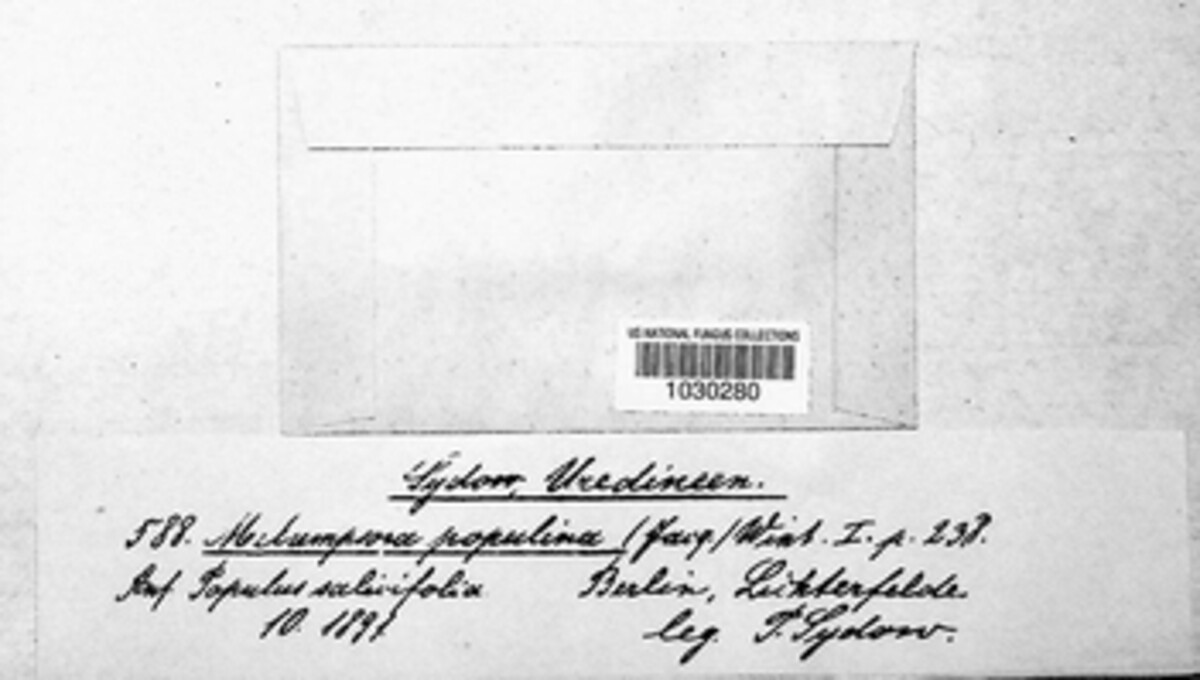 US NATIONAL FUNGUS COLLECTIONS
1030280
Sydow, Uredineen.
588. Melampsora populina (Jacq.) Wint. I. p. 238.
Auf Populus salicifolia Berlin, Lichterfelde.
10. 1891 leg. P. Sydow.